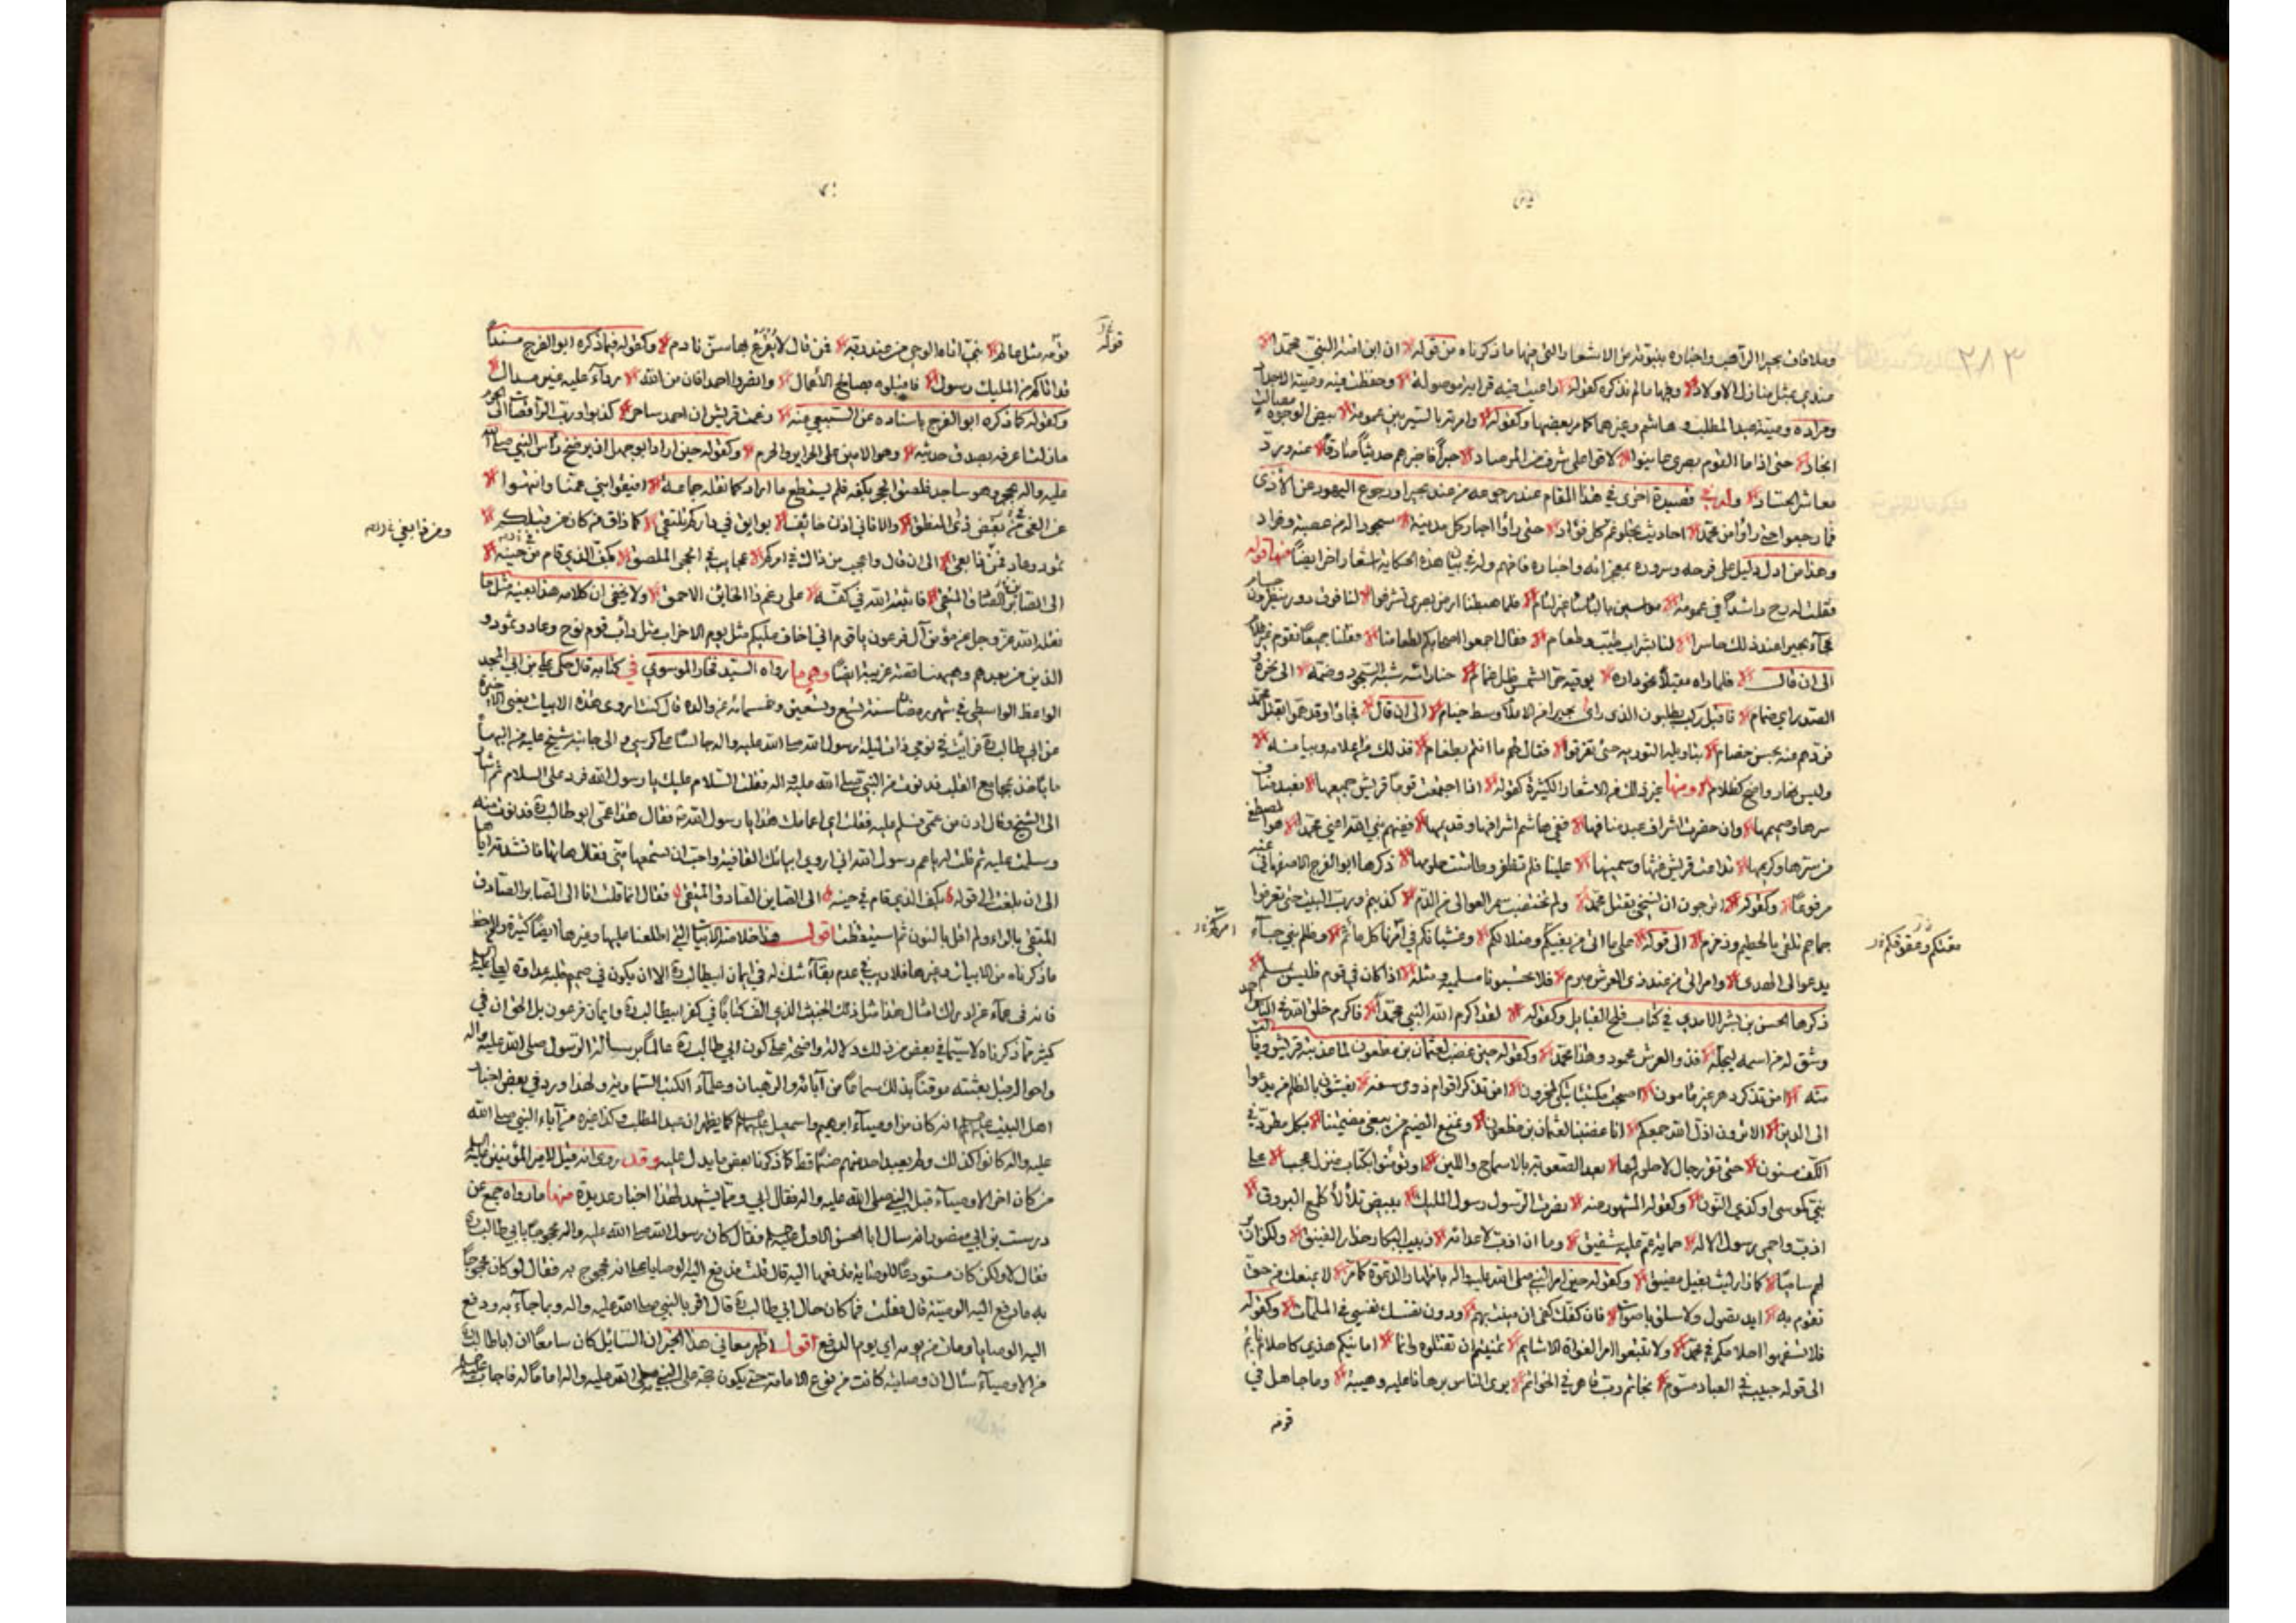 ٢٨٣
وملاقات بحيرا الراهب واخباره بنبوته من الاشعار التي منها ما ذكرناه من قوله ان ابن امنة النبي محمدا
عندي بمثل منازل الاولاد ومنها ما لم نذكره كقوله راعيت فيه قرابة موصولة وحفظت فيه وصية الاجداد
ومراده وصية عبد المطلب وهاشم وغيرهما كما مر بعضها وكقوله وامرته بالسير بين عمومة بيض الوجوه مصالت
انجاد حتى اذا ما القوم بصرى عاينوا لاقوا على شرف من المرصاد حبرا فاخبرهم حديثا صادقا عنه ورد
معاشر الحساد وله في قصيدة اخرى في هذا المقام عند رجوعه من عند بحيرا ورجوع اليهود عن الأذى
فما رجعوا حتى راوا من محمد احاديث تجلو غم كل فؤاد حتى رأوا احبار كل مدينة سجودا له من عصبة وفراد
وهذا من ادل دليل على فرحه وسروره بمعجزاته واخباره فافهم وله في بيان هذه الحكاية اشعار اخر ايضا منها قوله
فقلت له رح راشدا في عمومة مواسين بالباساء غير لئام فلما هبطنا ارض بصرى تشرفوا لنا فوق دور ينظرون جسام
فجآء بحيرا عند ذلك حاسرا لنا بشراب طيب وطعام فقال اجمعوا اصحابكم لطعامنا فقلنا جمعنا القوم غير غلام
الى ان قال فلما راه مقبلا نحو داره يوقيه حر الشمس ظل غمام حنا رأسه شبه السجود وضمه الى نحره و
الصدر اي ضمام فاقبل ركب يطلبون الذي راى بحيرا من الاملا وسط خيام الى ان قال فجاؤا وقد هموا بقتل محمد
فردهم عنه بحسن خصام بتاويله التورية حتى تفرقوا فقال لهم ما انتم بطغام فذلك من اعلامه وبيانه
وليس نهار واضح كظلام ومنها غير ذلك من الاشعار الكثيرة كقوله اذا اجتمعت قوما قريش جميعها فعبد مناف
سرها وصميمها وان حضرت اشراف عبد منافها ففي هاشم اشرافها وقديمها ففيهم نبي الله اعني محمدا هو المصطفى
من سرها وكريمها تداعت قريش غثها وسمينها علينا فلم تظفر وطاشت حلومها ذكرها ابو الفرج الاصفهاني عنه
مرفوعا وكقوله اترجون ان نسخى بقتل محمد ولم تختضب سمر العوالي من الدم كذبتم ورب البيت حتى تعرفوا
جماجم تلقى بالحطيم وزمزم الى قوله على ما اتى من بغيكم وضلالكم وغشيانكم في امرنا كل مأثم وظلم نبي جاء
يدعو الى الهدى وامر اتى من عند ذي العرش مبرم فلا تحسبونا مسلميه ومثله اذا كان في قوم فليس بمسلم
ذكرها الحسن بن بشر الامدي في كتاب ملح القبايل وكقوله لقد اكرم الله النبي محمدا فاكرم خلق الله في الناس احمد
وشق له من اسمه ليجله فذو العرش محمود وهذا محمد وكقوله حين غضب لعثمان بن مظعون لما عذبته قريش
منه امن تذكر دهر غير مأمون اصبحت مكتئبا تبكي كمحزون امن تذكر اقوام ذوي سفه يغشون بالظلم من يدعو
الى الدين الا ترون اذل الله جمعكم انا غضبنا لعثمان بن مظعون ونمنع الضيم من يبغي مضيمتنا بكل مطرد في
الكف مسنون حتى تقر رجال لا حلوم لها بعد الصعوبة بالاسماح واللين او تؤمنوا بكتاب منزل عجب على
نبي كموسى او كذي النون وكقوله المشهور عنه نصرت الرسول رسول المليك ببيض تلألأ كلمع البروق
اذب واحمي رسول الاله حماية عم عليه شفيق وما ان ادب لاعدائه دبيب البكار حذار الفنيق ولكن ازير
لهم ساميا كما زار ليث بغيل مضيق وكقوله حين امر النبي صلى الله عليه واله باظهار الدعوة كما مر لا يمنعنك من حق
تقوم به ايد تصول ولا سلق باصوات فان كفك كفي ان مليت بهم ودون نفسك نفسي في الملمات وكقوله
فلا تسفهوا احلامكم في محمد ولا تتبعوا امر الغواة الاشايم تمنيتم ان تقتلوه وانما امانيكم هذي كاحلام نايم
الى قوله حبيب في العباد مسوم بخاتم رب قاهر في الخواتم يرى الناس برهانا عليه وهيبة وما جاهل في
قومه
قومه مثل عالم نبي اتاه الوحي من عند ربه فمن قال لا يقرع بها سن نادم وكقوله فيما ذكره ابو الفرج مسندا
قد اتاكم من المليك رسول فاقبلوه بصالح الأعمال وانصروا احمدا فان من الله رداء عليه غير مدال
وكقوله كما ذكره ابو الفرج باسناده عن السبيعي عنه زعمت قريش ان احمد ساحر كذبوا ورب الراقصات الى الحرم
ما زلت اعرفه بصدق حديثه وهو الامين على الحرايب والحرم وكقوله حين اراد ابو جهل ان يرضخ رأس النبي صلى الله
عليه واله بحجر وهو ساجد فلصق الحجر بكفه فلم يستطع ما اراد كما نقله جماعة افيقوا بني عمنا وانتهوا
عن الغي من بعض ذي المنطق والا فاني اذن خائف بوايق في داركم تلتقي كما ذاق من كان من قبلكم
ثمود وعاد فمن ذا بقي الى ان قال واعجب من ذاك في امركم عجايب في الحجر الملصق بكف الذي قام من حينه
الى الصابر الصادق المتقي فاثبته الله في كفه على رغم ذا الخائن الاحمق ولا يخفى ان كلامه هذا بعينه مثل ما
نقله الله عز وجل عن مؤمن آل فرعون يا قوم اني اخاف عليكم مثل يوم الاحزاب مثل دأب قوم نوح وعاد وثمود و
الذين من بعدهم وههنا قصة غريبة ايضا وهي ما رواه السيد فخار الموسوي في كتابه قال حكى علي بن ابي المجد
الواعظ الواسطي في شهر رمضان سنة تسع وتسعين وخمسمائة عن والده قال كنت اروي هذه الابيات يعني الاخيرة
عن ابي طالب فرايت في نومي ذات ليلة رسول الله صلى الله عليه واله جالسا على كرسي والى جانبه شيخ عليه من البهاء
ما يأخذ بمجامع القلب فدنوت من النبي صلى الله عليه واله فقلت السلام عليك يا رسول الله فرد علي السلام ثم اشار
الى الشيخ وقال ادن من عمي فسلم عليه فقلت اي اعمامك هذا يا رسول الله فقال هذا عمي ابو طالب فدنوت منه
وسلمت عليه ثم قلت له يا عم رسول الله اني اروي ابياتك القافية واحب ان تسمعها مني فقال هاتها فانشدته اياها
الى ان بلغت الى قوله بكف الذي قام في حينه الى الصاين الصادق المتقي فقال انما قلت انا الى الصابر الصادق
المتقي بالراء ولم اقل بالنون ثم استيقظت اقول هذا خلاصة الابيات التي اطلعنا عليها وغيرها ايضا كثيرة
ما ذكرناه من الابيات وغيرها فلا ريب في عدم بقاء شك له في ايمان ابي طالب الا ان يكون في صميم قلبه عداوة
كثير مما ذكرناه لا سيما في بعض من ذلك دلالة واضحة على كون ابي طالب عالما برسالة الرسول صلى الله عليه واله
واحواله قبل بعثته موقنا بذلك سماعا من آبائه والرهبان وعلماء الكتب السماوية ولهذا ورد في بعض اخبار
اهل البيت عليهم انه كان من اوصياء ابرهيم واسمعيل كما يظهر ان عبد المطلب وكذا غيره من آباء النبي صلى الله
عليه واله كانوا كذلك ولم يعبد احد منهم صنما قط كما ذكرنا بعض ما يدل عليه وقد روي انه قيل لامير المؤمنين
من كان اخر الاوصياء قبل النبي صلى الله عليه واله فقال ابي ومما يشهد لهذا اخبار عديدة منها ما رواه جمع عن
درست بن ابي منصور انه سال ابا الحسن الاول فقال كان رسول الله صلى الله عليه واله محجوجا بابي طالب
فقال لا ولكن كان مستودعا للوصايا فدفعها اليه قال قلت فدفع اليه الوصايا على انه محجوج به فقال لو كان محجوجا
به ما دفع اليه الوصية قال فقلت فما كان حال ابي طالب قال اقر بالنبي صلى الله عليه واله وبما جاء به ودفع
اليه الوصايا ومات من يومه اي يوم الدفع اقول اظهر معاني هذا الخبر ان السايل كان سامعا ان ابا طالب
من الاوصياء سأل ان وصايته كانت من نوع الامامة حتى يكون حجة على النبي صلى الله عليه واله اماما له فاجاب